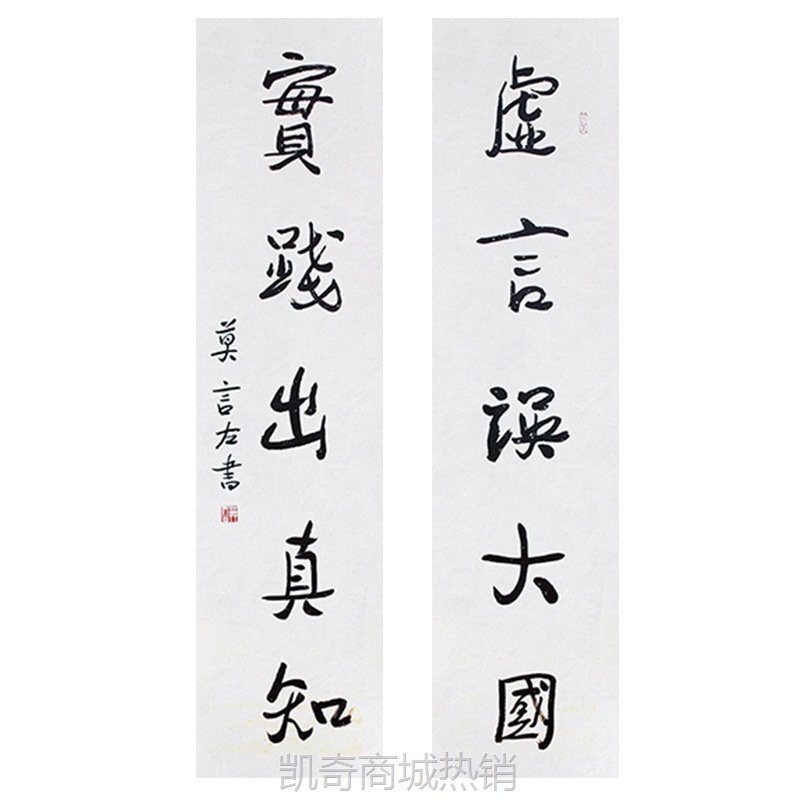 虚言誤大國
實踐出真知
莫言左書
凯奇商城热销